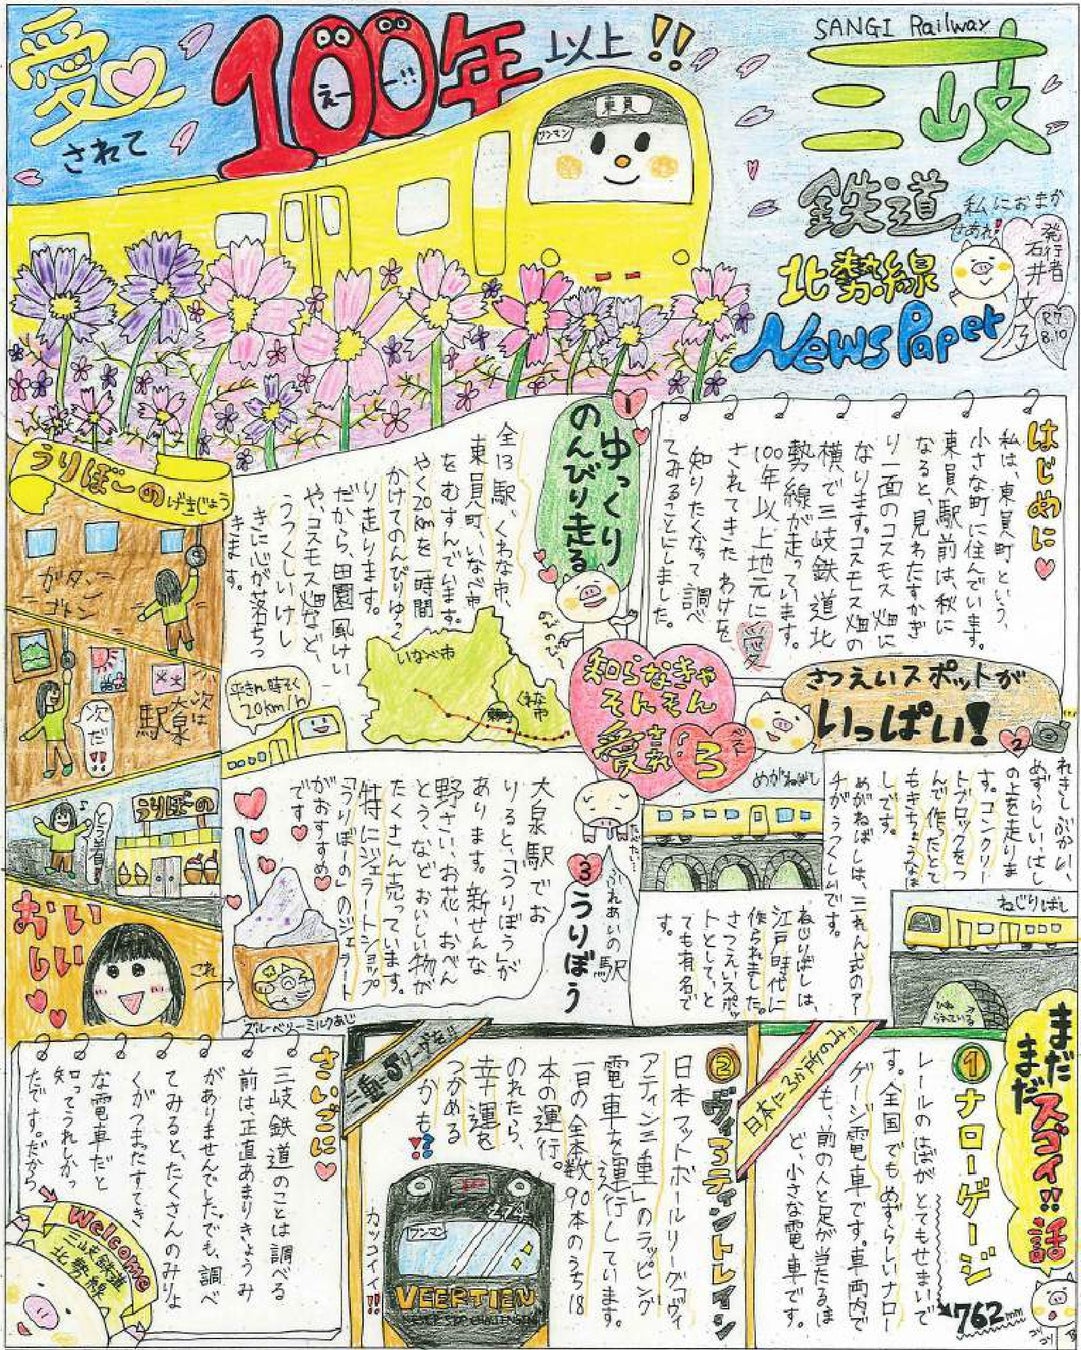 愛されて
100年以上!!
えー!!
東員
ワンマン
SANGI Railway
三岐
鉄道
北勢線
NewsPaper
私におまか
せあれ!
発行者
石井文乃
R7.
8.10
はじめに
私は、東員町という、
小さな町に住んでいます。
東員駅前は、秋に
なると、見わたすかぎ
り一面のコスモス畑に
なります。コスモス畑の
横で三岐鉄道北
勢線が走っています。
100年以上地元に愛
されてきたわけを
知りたくなって調べ
てみることにしました。
1
ゆっくり
のんびり走る
全13駅、くわな市、
東員町、いなべ市
をむすんでいます。
やく20kmを一時間
かけてのんびりゆっく
り走ります。
だから、田園風けい
や、コスモス畑など、
うつくしいけし
きに心が落ちつ
きます。
いなべ市
くわな市
平きん時そく
20km/h
知らなきゃ
そんそん
愛され
ベスト3
さつえいスポットが
いっぱい!
2
れきしぶかい、
めずらしい、はし
の上を走りま
す。コンクリー
トブロックをつ
んで作ったとて
もきちょうなは
しです。
めがねばしは、三れん式のアー
チがうつくしいです。
ねじりばしは、
江戸時代に
作られました。
さつえいスポッ
トとして、とっ
ても有名で
す。
めがねばし
ねじりばし
ねじ
られている
3
ふれあいの駅
うりぼう
大泉駅でお
りると、「うりぼう」が
あります。新せんな
野さい、お花、おべん
とう、などおいしい物が
たくさん売っています。
特にジェラートショップ
「うりぼーの」のジェラート
がおすすめ
です
ブルーベリーミルクあじ
うりぼーの
げきじょう
ガタン
ゴトン
次は
大泉
駅
次だ!!
うりぼーの
とう着!
おい
しい
これ
まだ
まだ
スゴイ!!話
1
ナローゲージ
レールのはばがとてもせまいで
す。全国でもめずらしいナロー
ゲージ電車です。車両内で
も、前の人と足が当たるほ
ど、小さな電車です。
762mm
日本に3か所のみ!!
2
ヴィアティントレイン
日本フットボールリーグ「ヴィ
アティン三重」のラッピング
電車を運行しています。
一日の全本数90本のうち18
本の運行。
のれたら、
幸運を
つかめる
かも!?
三重にJリーグを!!
カッコイイ!!
ワンマン
VEERTIEN
さいごに
三岐鉄道のことは調べる
前は、正直あまりきょうみ
がありませんでした。でも、調べ
てみると、たくさんのみりょ
くがつまったすてき
な電車だと
知ってうれしかっ
たです。だから
Welcome
三岐鉄道
北勢線